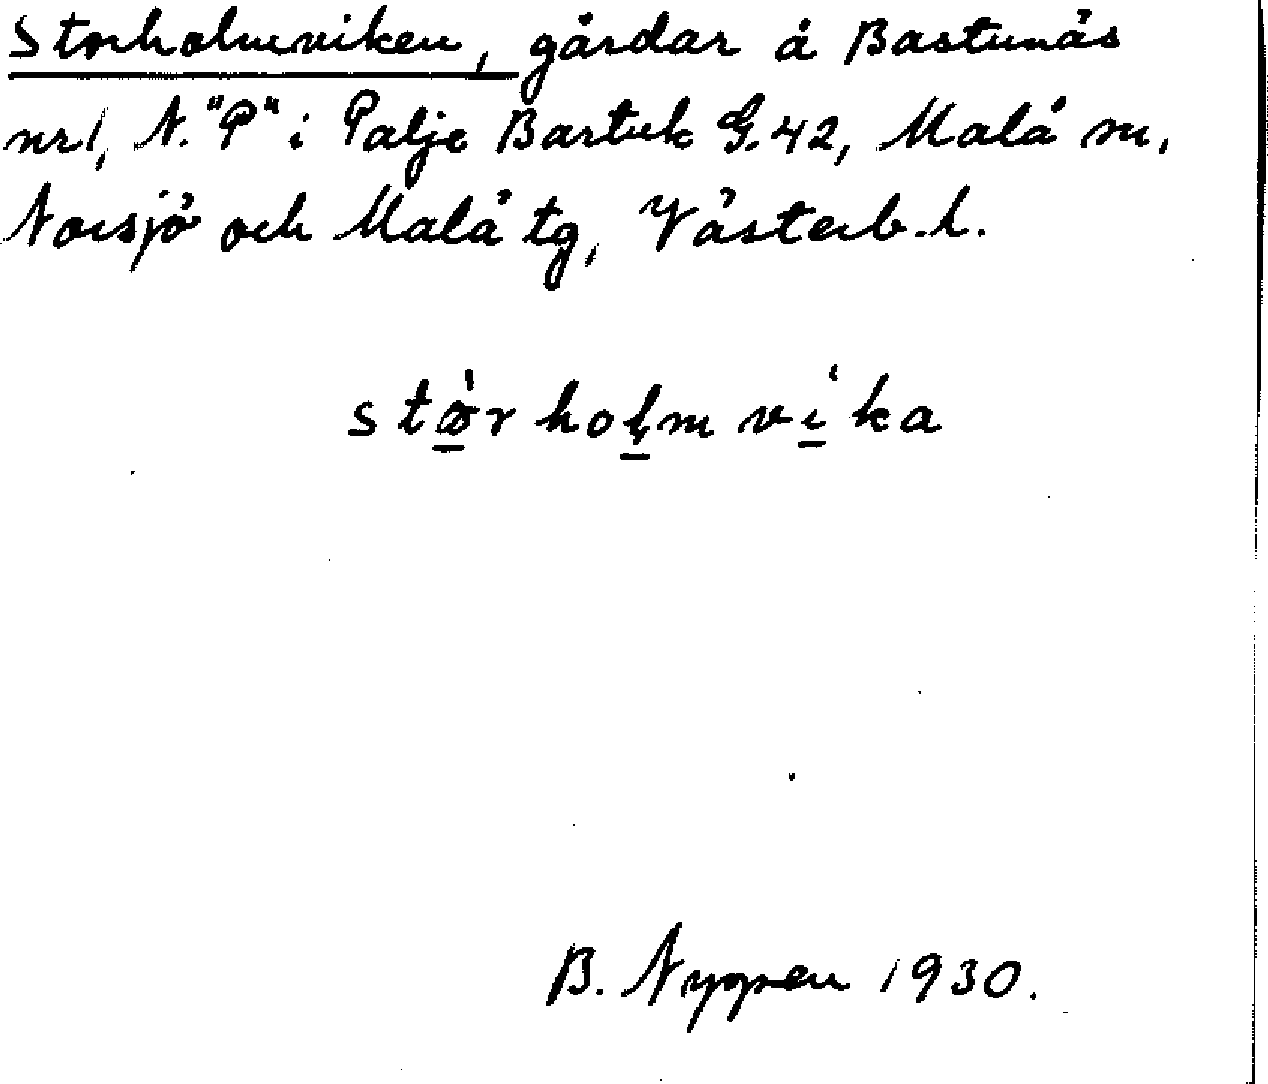 Storholmsviken, gårdar å Bastunäs
nr 1, N. "P" i Palje Bastuk G.42, Malå sn,
Norsjö och Malå tg, Västerb. l.
stǿr hoḷm vi̱ˈka
B. Nygren 1930.